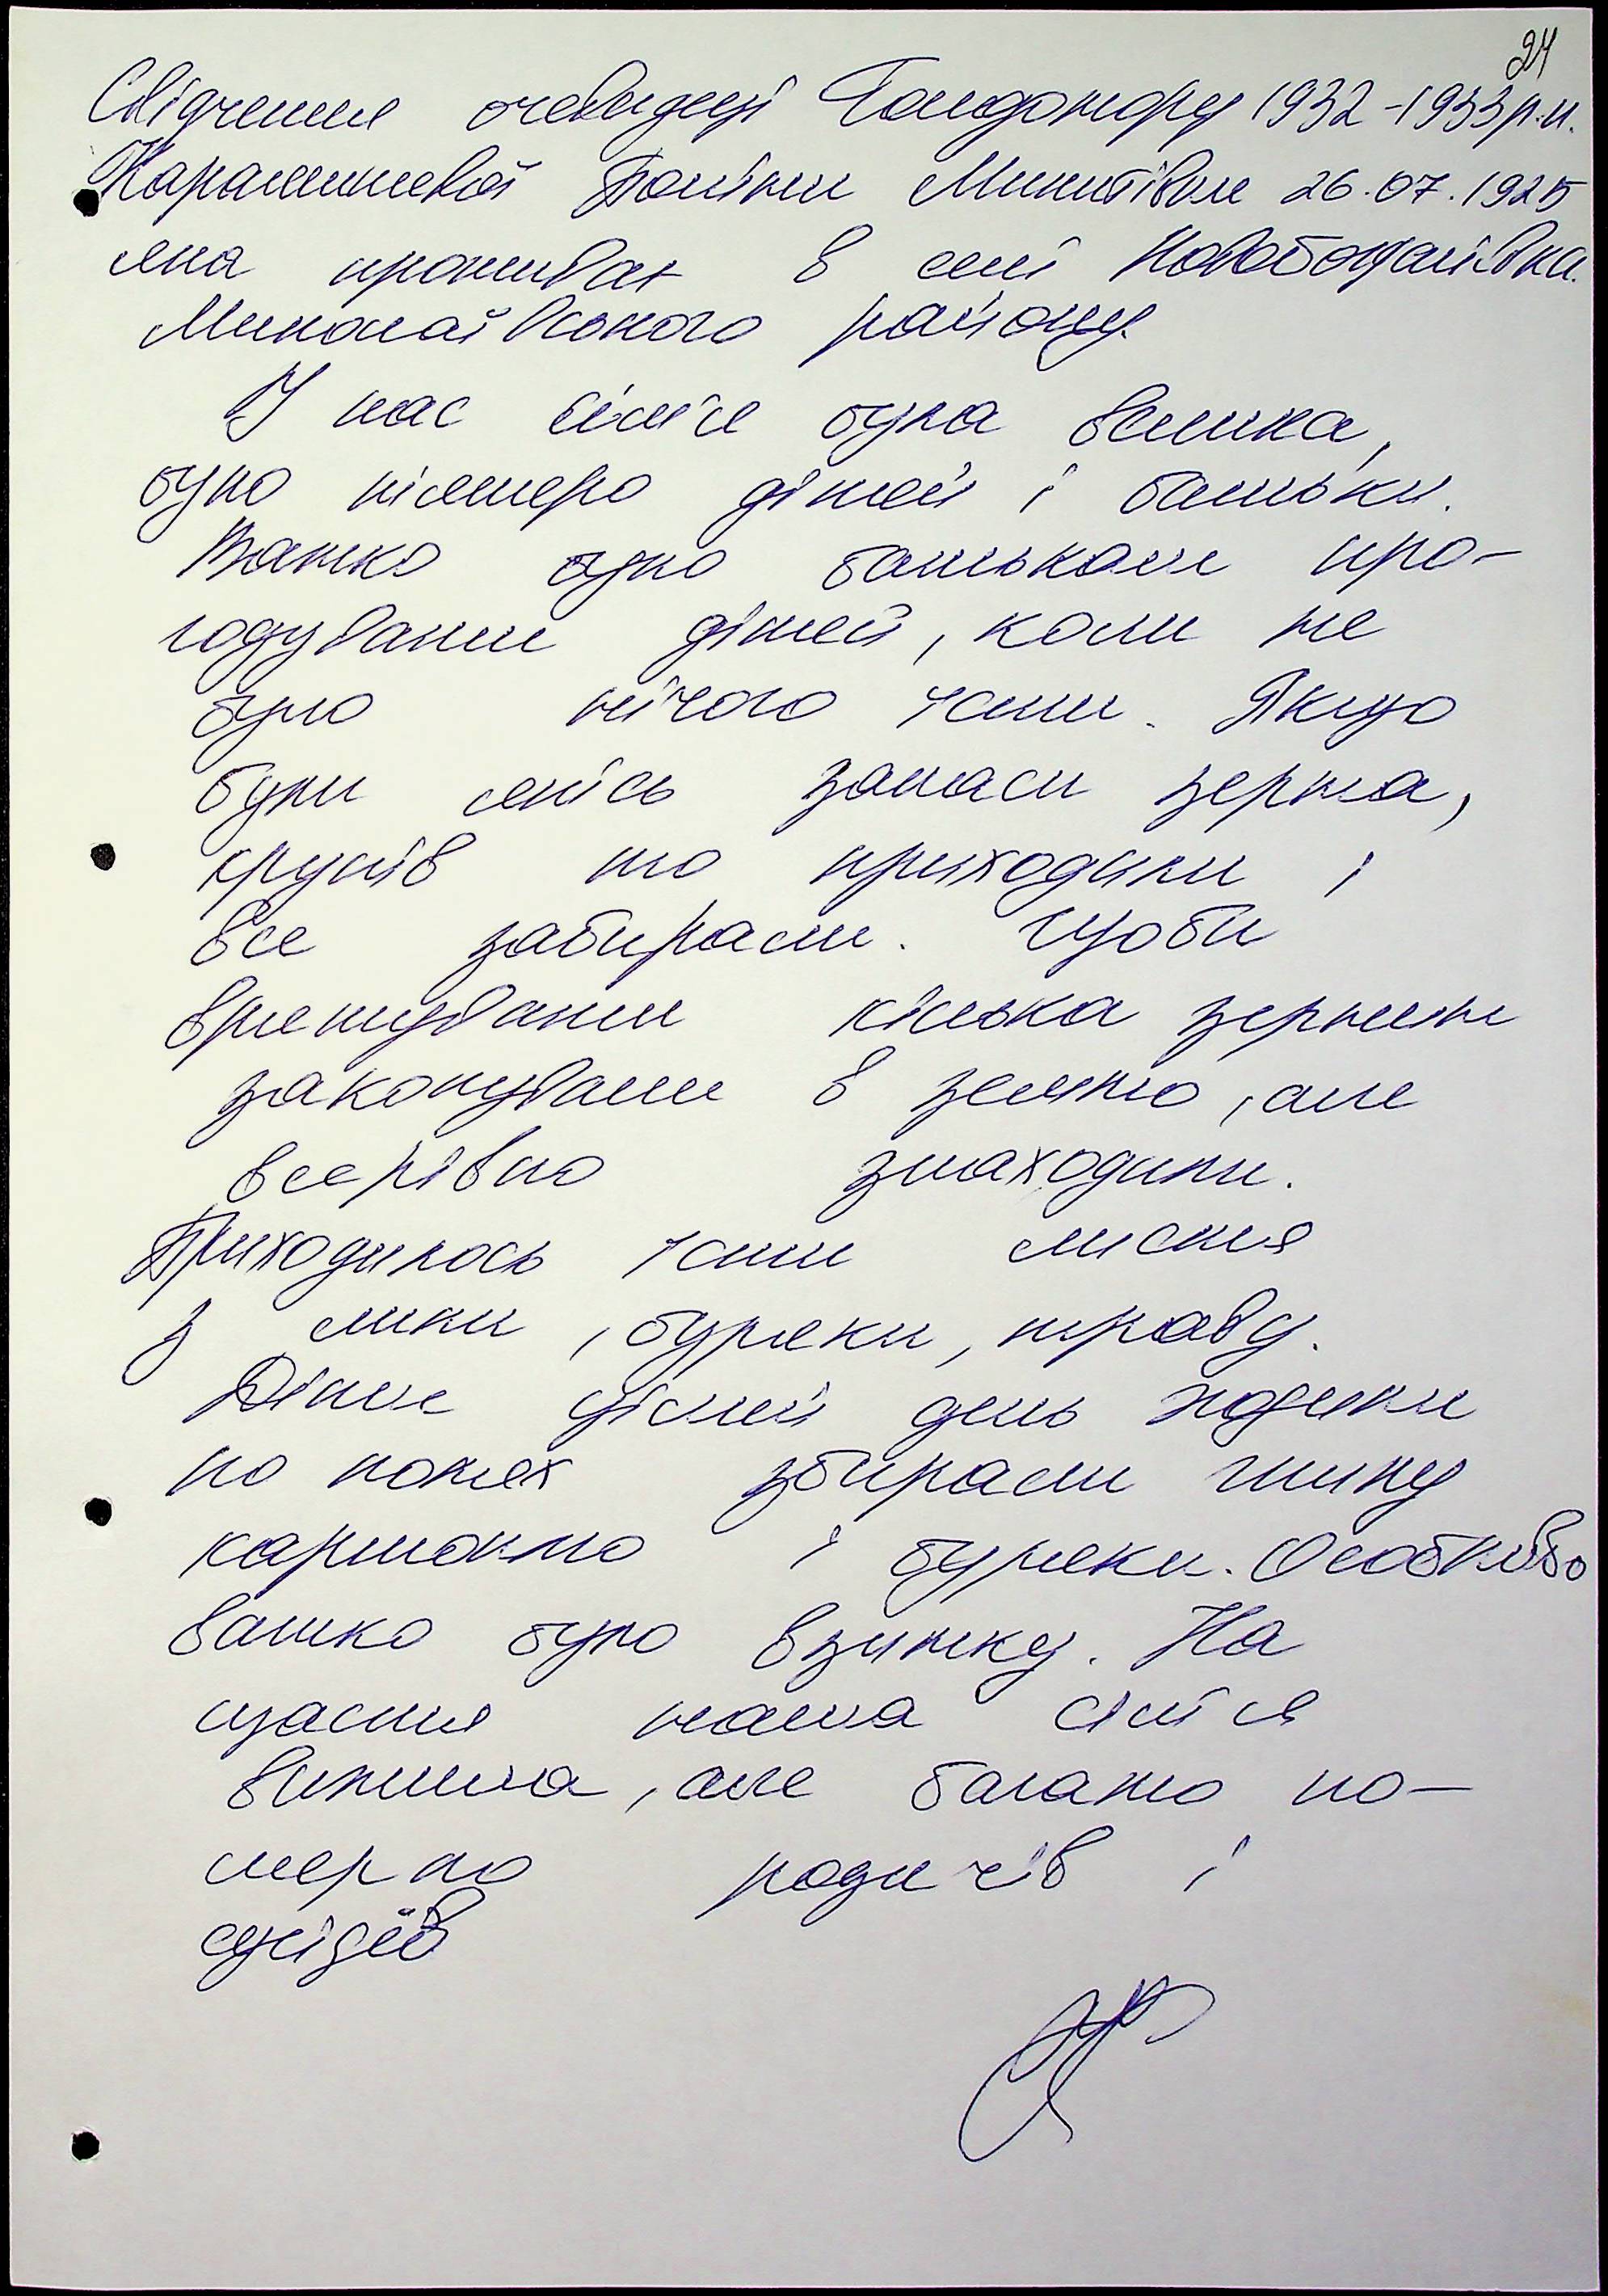 24
Свідчення очевидці Голодомору 1932-1933 р.н.
Поліни Микитівни 26.07.1925
яка проживає в селі Новобогданівка
Миколаївського району.
У нас сім'я була велика,
було п'ятеро дітей і батьки.
Важко було батькам про-
годувати дітей, коли не
було нічого їсти. Якщо
були якісь запаси зерна,
крупів то приходили і
все забирали. Щоби
врятувати кілька зернин
закопували в землю, але
всерівно знаходили.
Приходилось їсти листя
з липи, буряки, траву.
Діти цілий день ходили
по полях збирали гнилу
картоплю і буряки. Особливо
важко було взимку. На
щастя наша сім'я
вижила, але багато по-
мерло родичів і
сусідів